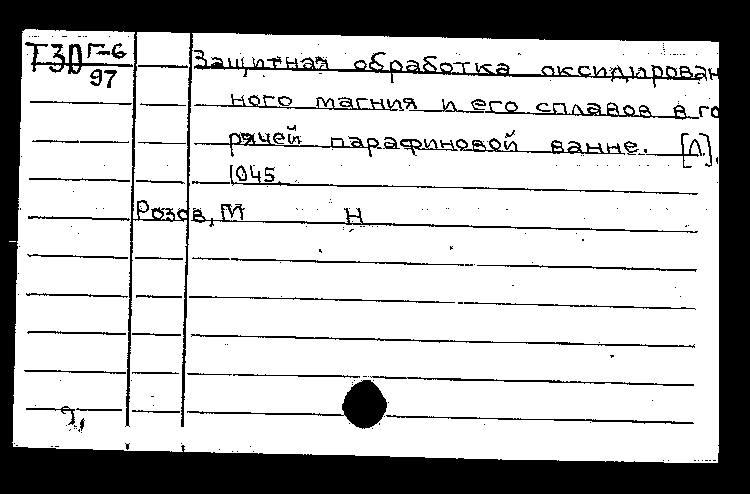 Т30 Г-6
97
Защитная обработка оксидирован
ного магния и его сплавов в го
рячей парафиновой ванне. [Л].
1045.
Розов, М Н